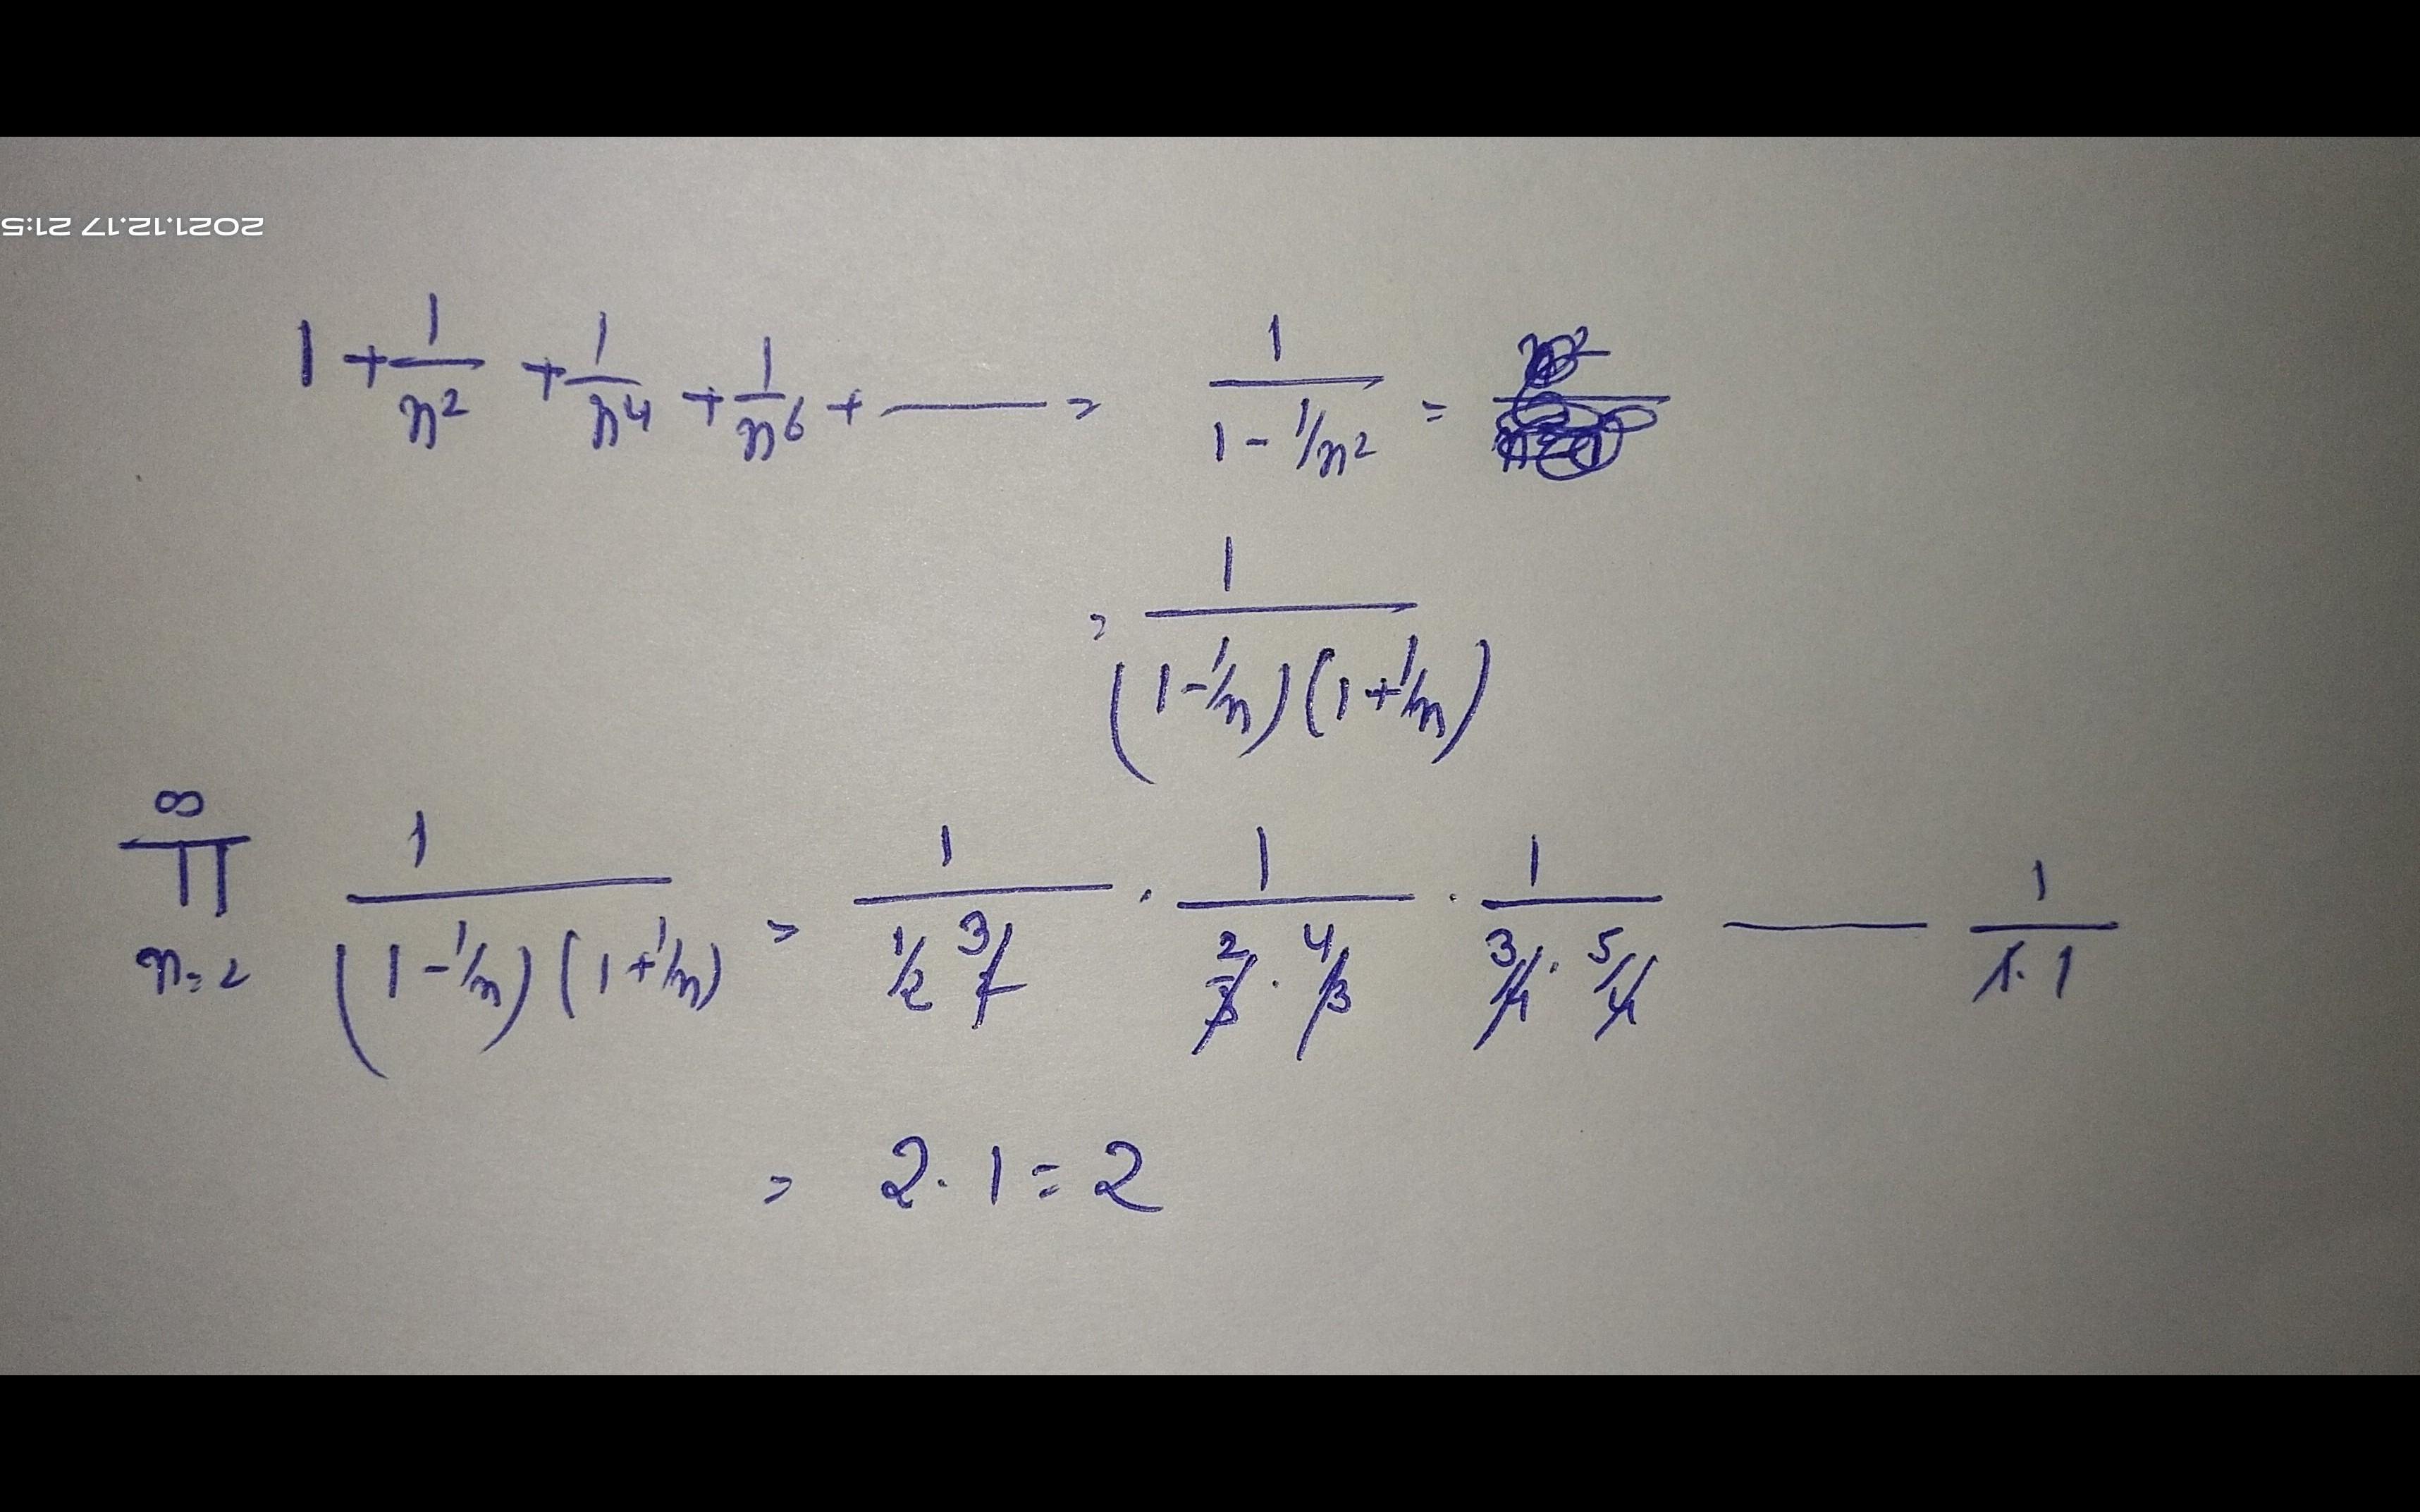 2021.12.17 21:5
1 + 1/n² + 1/n⁴ + 1/n⁶ + —— = 1/(1 - 1/n²) =
= 1/((1 - 1/n)(1 + 1/n))
∞ ∏ n=2 1/((1 - 1/n)(1 + 1/n)) = 1/(1/2 3/2) · 1/(2/3 · 4/3) · 1/(3/4 · 5/4) —— 1/(1·1)
= 2·1 = 2